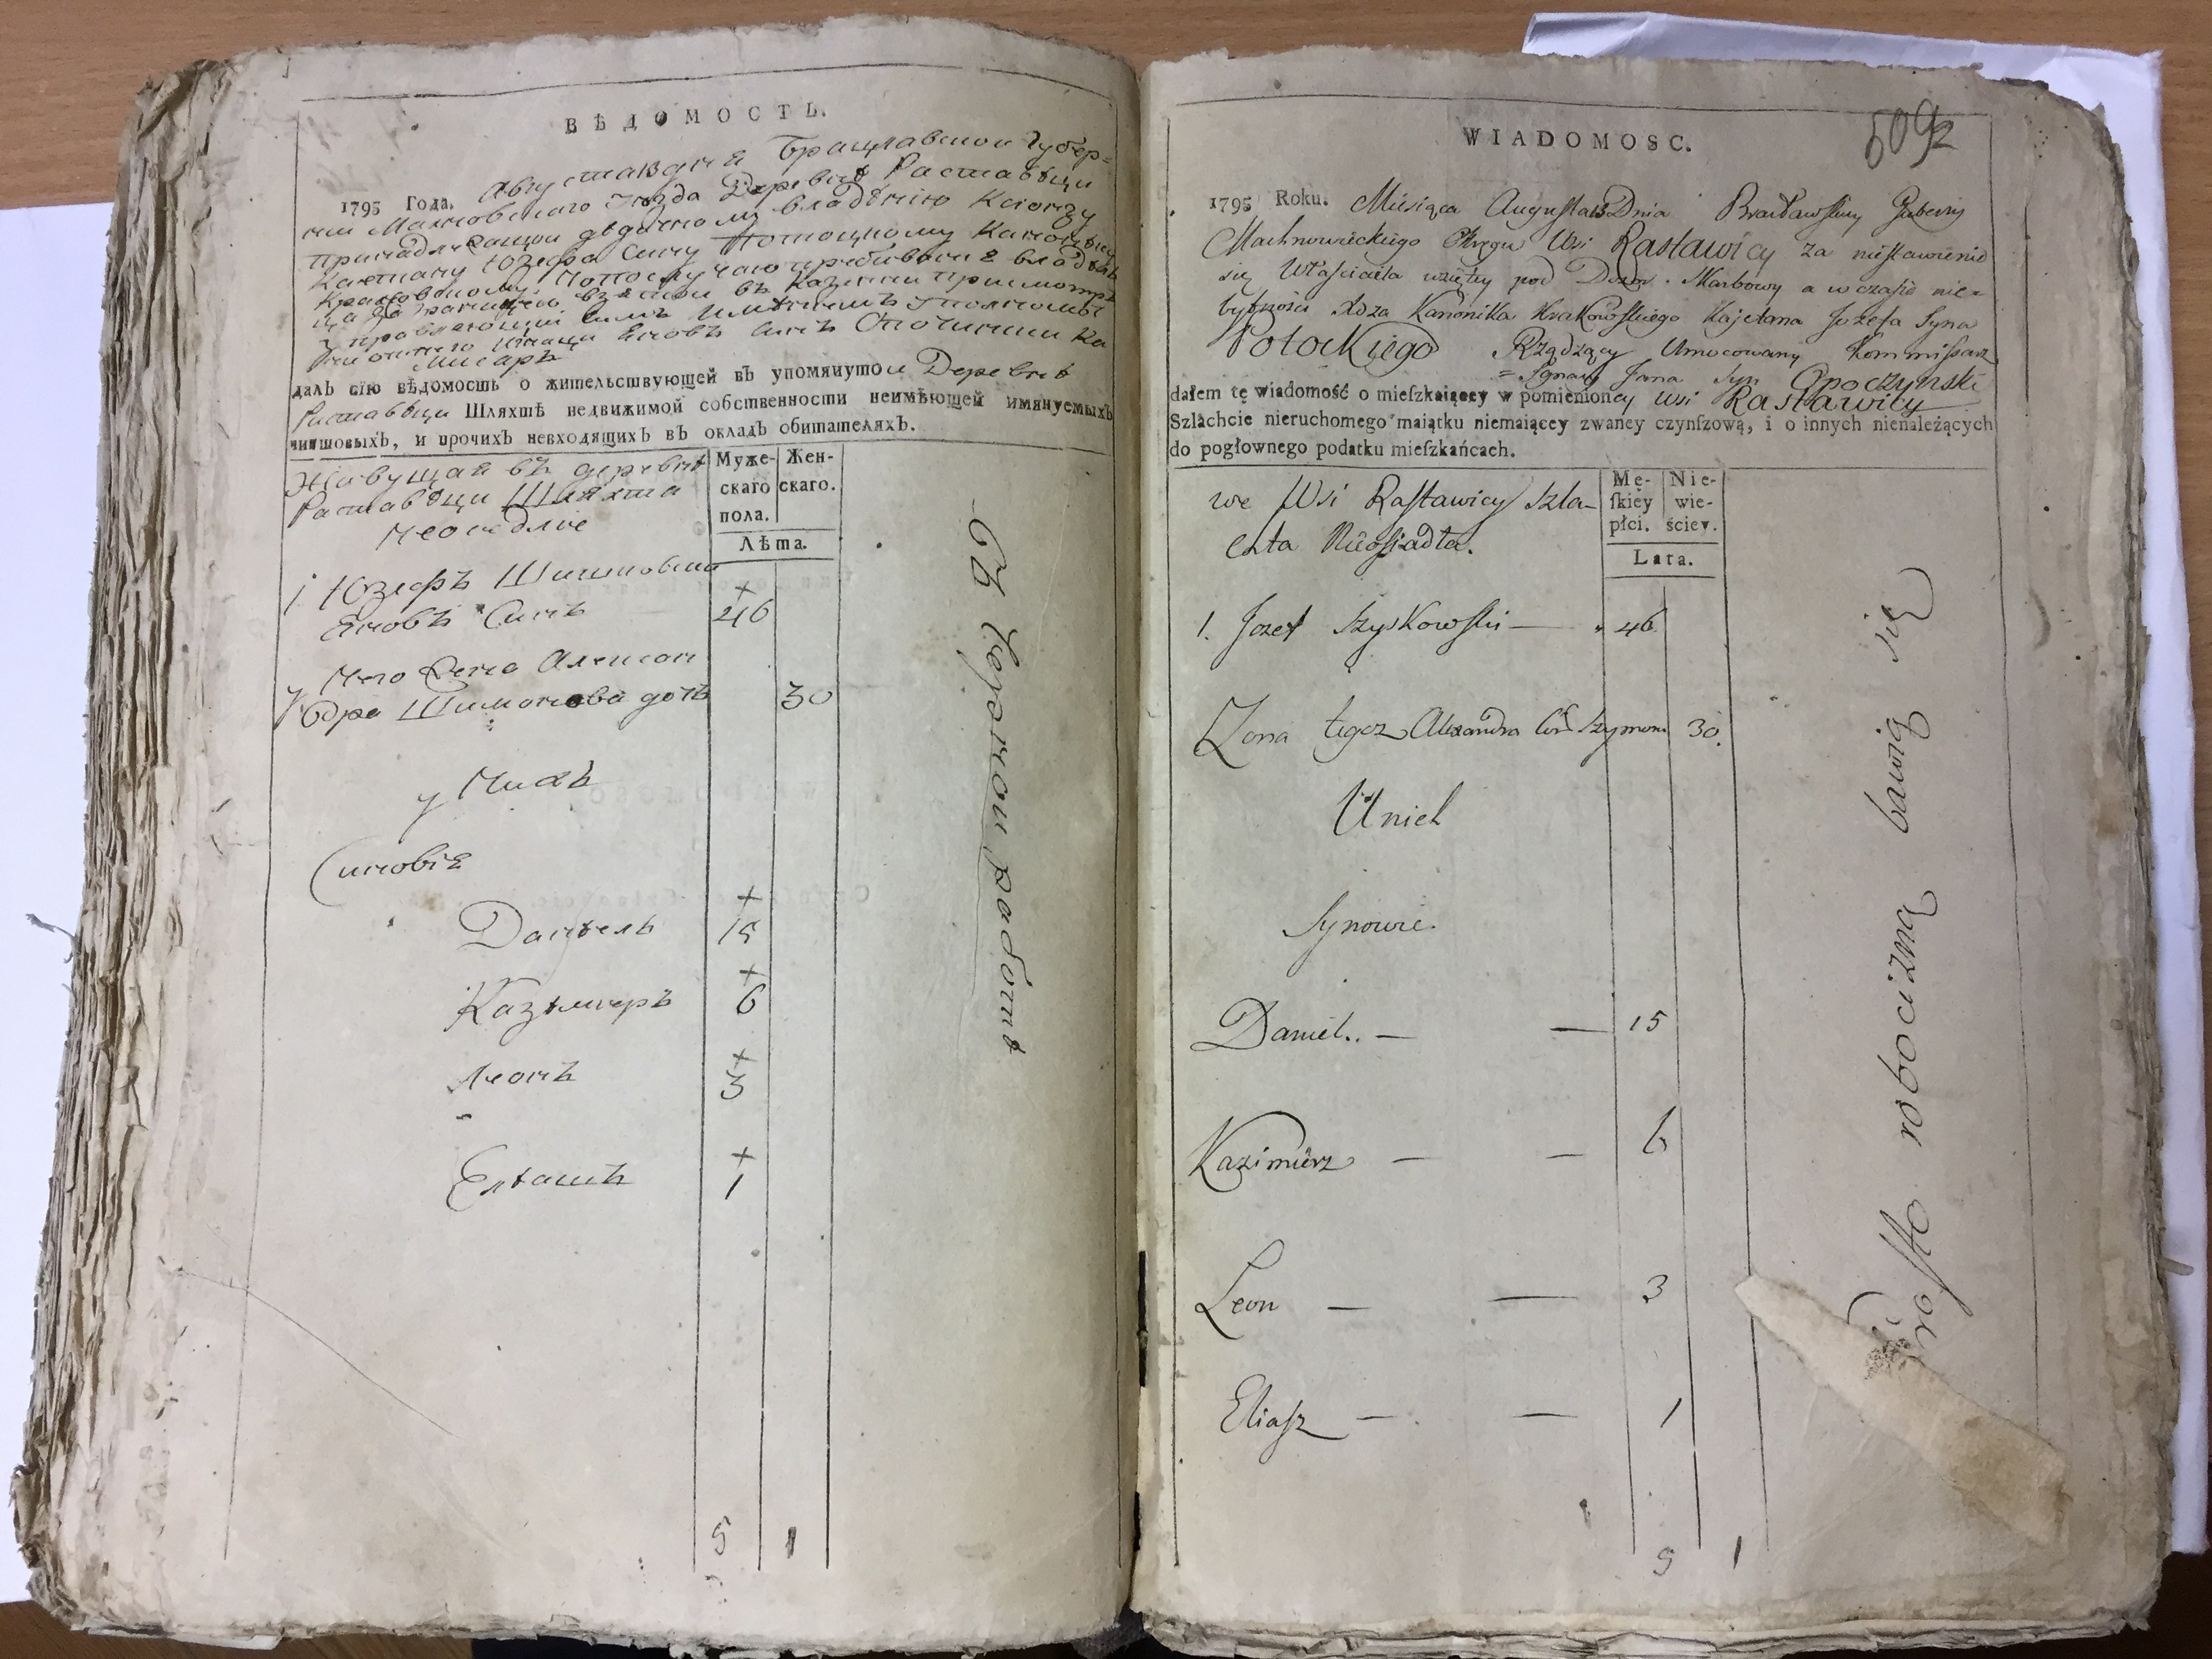 ВѢДОМОСТЬ.
1795 Года. Августа 13 дня Брацлавской Губер=
нии Махновского Уезда Деревнѣ Раставѣци
принадлежащой дѣдичному владѣнію Ксіонзу
Каетану Юзефа Сину Потоцкому Канонику
Краковскому
писаръ
далъ сїю вѣдомость о жительствующей въ упомянутои Деревнѣ
Раставѣци Шляхтѣ недвижимой собственности неимѣющей имянуемыхъ
чиншовыхъ, и прочихъ невходящихъ въ окладъ обитателяхъ.
Живущая въ деревнѣ
Раставѣци Шляхта
Неоседліе
Муже-
скаго
пола.
Жен-
скаго.
Лѣта.
1 Юзефъ Шишковски
Яновъ Синъ + 46
Него Жена Алексан
дра Шимонова дочъ 30
у Нихъ
Синовіе
Данѣель + 15
Казѣмеръ + 6
Леонъ + 3
Елѣашъ + 1
5 1
Съ чорной работѣ
WIADOMOSC.
509 92
1795 Roku. Miesiąca Augusta 13 Dnia Bracławskiey Gubernij
Machnowieckiego Okręgu Wsi Rastawicy za niestawienie
się Właściciela wziętey pod Dozor Skarbowy a w czasie nie=
bytności Xdza Kanonika Krakowskiego Kajetana Jozefa Syna
Potockiego Rządzący Umocowany Kommissarz
= Ignacy Jana Syn Opoczynski
dałem tę wiadomość o mieſzkaiącey w pomienioney Wsi Rastawicy
Szlachcie nieruchomego maiątku niemaiącey zwaney czynſzową, i o innych nienależących
do pogłownego podatku mieſzkańcach.
we Wsi Rastawicy Szla-
chta Nieosiadła.
Mę-
ſkiey
płci.
Nie-
wie-
ściey.
Lata.
1. Jozef Szyskowski — 46
Zona tegoz Alexandra Cór Szymona 30.
U nich
Synowie.
Daniel. — — 15
Kazimierz — — 6
Leon — — 3
Eliasz — — 1
5 1
Prosto robocizną bawią się